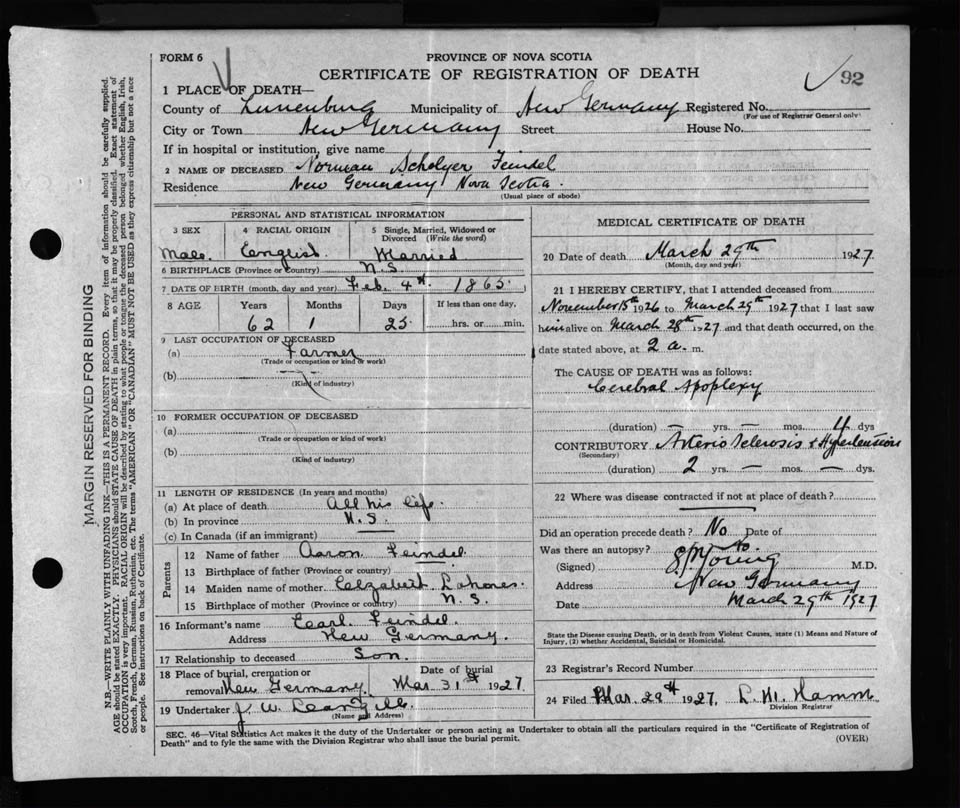 FORM 6
PROVINCE OF NOVA SCOTIA
CERTIFICATE OF REGISTRATION OF DEATH
92
1 PLACE OF DEATH—
County of Lunenburg Municipality of New Germany Registered No.
(For use of Registrar General only)
City or Town New Germany Street House No.
If in hospital or institution, give name
2 NAME OF DECEASED Norman Scholyer Feindel
Residence New Germany Nova Scotia.
(Usual place of abode)
PERSONAL AND STATISTICAL INFORMATION
3 SEX 4 RACIAL ORIGIN 5 Single, Married, Widowed or Divorced (Write the word)
Male. English. Married
6 BIRTHPLACE (Province or Country) N.S.
7 DATE OF BIRTH (month, day and year) Feb. 4th. 1865.
8 AGE Years Months Days If less than one day,
62 1 25 hrs. or min.
9 LAST OCCUPATION OF DECEASED
(a) Farmer
(Trade or occupation or kind or work)
(b)
(Kind of industry)
10 FORMER OCCUPATION OF DECEASED
(a)
(Trade or occupation or kind of work)
(b)
(Kind of industry)
11 LENGTH OF RESIDENCE (In years and months)
(a) At place of death All his life.
(b) In province N.S.
(c) In Canada (if an immigrant)
Parents
12 Name of father Aaron Feindel.
13 Birthplace of father (Province or country)
14 Maiden name of mother
15 Birthplace of mother (Province or country) N.S.
16 Informant's name Earl Feindel.
Address New Germany.
17 Relationship to deceased Son.
18 Place of burial, cremation or removal New Germany Date of burial Mar. 31st 1927.
19 Undertaker J. W.
(Name and Address)
MEDICAL CERTIFICATE OF DEATH
20 Date of death March 29th 1927
(Month, day and year)
21 I HEREBY CERTIFY, that I attended deceased from
November 15th 1926 to March 29th 1927 that I last saw
him alive on March 28th 1927 and that death occurred, on the
date stated above, at 2 a. m.
The CAUSE OF DEATH was as follows:
Cerebral Apoplexy
(duration) — yrs. — mos. 4 dys
CONTRIBUTORY Arterio Sclerosis & Hypertension
(Secondary)
(duration) 2 yrs. — mos. — dys.
22 Where was disease contracted if not at place of death?
Did an operation precede death? No Date of
Was there an autopsy? No.
(Signed) Young M.D.
Address New Germany
Date March 29th 1927
State the Disease causing Death, or in death from Violent Causes, state (1) Means and Nature of
Injury, (2) whether Accidental, Suicidal or Homicidal.
23 Registrar's Record Number
24 Filed Mar. 29th 1927, Hamm
Division Registrar
SEC. 46—Vital Statistics Act makes it the duty of the Undertaker or person acting as Undertaker to obtain all the particulars required in the "Certificate of Registration of
Death" and to fyle the same with the Division Registrar who shall issue the burial permit.
(OVER)
MARGIN RESERVED FOR BINDING
N.B.—WRITE PLAINLY WITH UNFADING INK—THIS IS A PERMANENT RECORD. Every item of information should be carefully supplied.
AGE should be stated EXACTLY. PHYSICIANS should STATE CAUSE OF DEATH in plain terms, so that it may be properly classified. Exact statement of
OCCUPATION is very important. RACIAL ORIGIN will be described by stating to what people or tongue the deceased person belonged whether English, Irish,
Scotch, French, German, Russian, Ruthenian, etc. The terms "AMERICAN" OR "CANADIAN" MUST NOT BE USED as they express citizenship but not a race
or people. See instructions on back of Certificate.